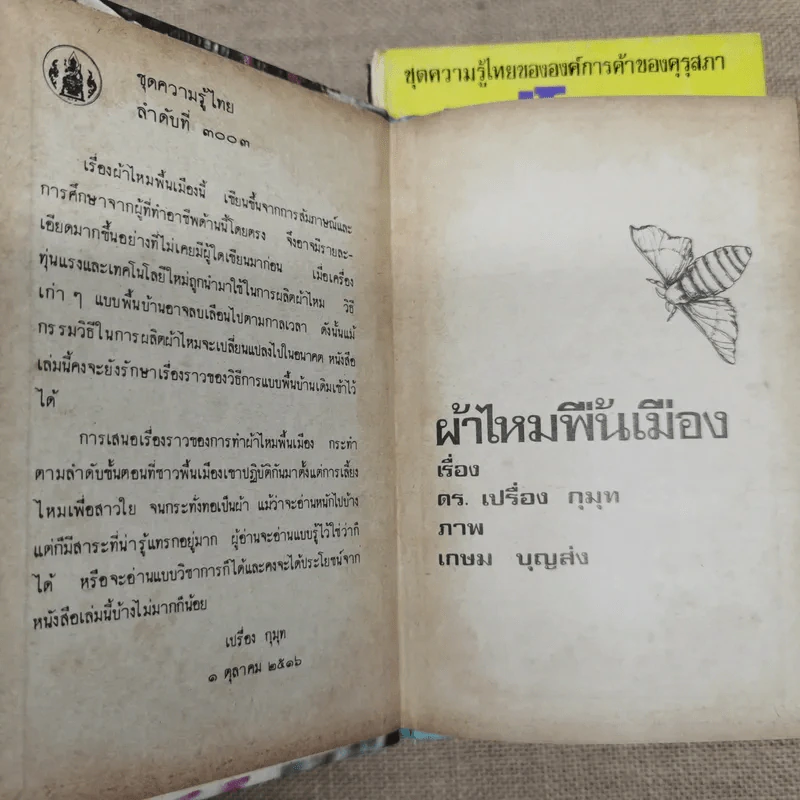 ชุดความรู้ไทยขององค์การค้าของคุรุสภา
ชุดความรู้ไทย
ลำดับที่ ๓๐๐๓
เรื่องผ้าไหมพื้นเมืองนี้ เขียนขึ้นจากการสัมภาษณ์และ
การศึกษาจากผู้ที่ทำอาชีพด้านนี้โดยตรง จึงอาจมีรายละ-
เอียดมากขึ้นอย่างที่ไม่เคยมีผู้ใดเขียนมาก่อน เมื่อเครื่อง
ทุ่นแรงและเทคโนโลยีใหม่ถูกนำมาใช้ในการผลิตผ้าไหม วิธี
เก่า ๆ แบบพื้นบ้านอาจลบเลือนไปตามกาลเวลา ดังนั้นแม้
กรรมวิธีในการผลิตผ้าไหมจะเปลี่ยนแปลงไปในอนาคต หนังสือ
เล่มนี้คงจะยังรักษาเรื่องราวของวิธีการแบบพื้นบ้านเดิมเข้าไว้
ได้
การเสนอเรื่องราวของการทำผ้าไหมพื้นเมือง กระทำ
ตามลำดับขั้นตอนที่ชาวพื้นเมืองเขาปฏิบัติกันมาตั้งแต่การเลี้ยง
ไหมเพื่อสาวใย จนกระทั่งทอเป็นผ้า แม้ว่าจะอ่านหนักไปบ้าง
แต่ก็มีสาระที่น่ารู้แทรกอยู่มาก ผู้อ่านจะอ่านแบบรู้ไว้ใช่ว่าก็
ได้ หรือจะอ่านแบบวิชาการก็ได้และคงจะได้ประโยชน์จาก
หนังสือเล่มนี้บ้างไม่มากก็น้อย
เปรื่อง กุมุท
๑ ตุลาคม ๒๕๑๖
ผ้าไหมพื้นเมือง
เรื่อง
ดร. เปรื่อง กุมุท
ภาพ
เกษม บุญส่ง